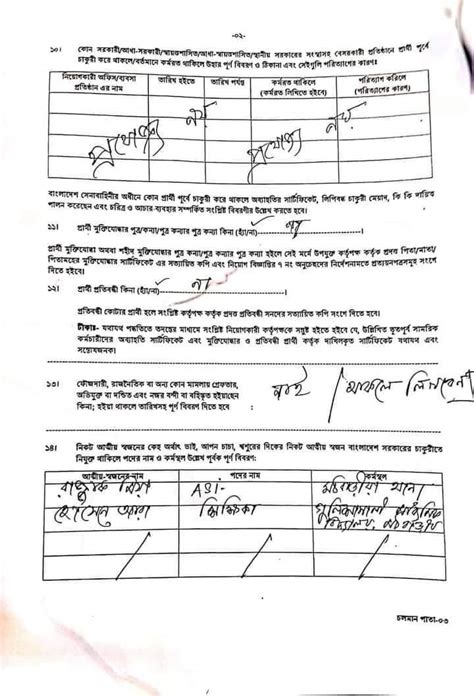 -০২-
১০। কোন সরকারী/আধা-সরকারী/স্বায়ত্তশাসিত/আধা-স্বায়ত্তশাসিত/স্থানীয় সরকারের সংস্থাসহ বেসরকারী প্রতিষ্ঠানে প্রার্থী পূর্বে
চাকুরী করে থাকলে/বর্তমানে কর্মরত থাকিলে উহার পূর্ণ বিবরণ ও ঠিকানা এবং সেইগুলি পরিত্যাগের কারণঃ
নিয়োগকারী অফিস/ব্যবসা প্রতিষ্ঠান এর নাম
তারিখ হইতে
তারিখ পর্যন্ত
কর্মরত থাকিলে (কর্মরত লিখিতে হইবে)
পরিত্যাগ করিলে (পরিত্যাগের কারণ)
প্রযোজ্য নয়
প্রযোজ্য নয়
বাংলাদেশ সেনাবাহিনীর অধীনে কোন প্রার্থী পূর্বে চাকুরী করে থাকলে অব্যাহতির সার্টিফিকেট, লিপিবদ্ধ চাকুরী মেয়াদ, কি কি দায়িত্ব
পালন করেছেন এবং চরিত্র ও আচার-ব্যবহার সম্পর্কিত সংশ্লিষ্ট বিবরণীর উল্লেখ করতে হবে।
১১। প্রার্থী মুক্তিযোদ্ধার পুত্র/কন্যা/পুত্র কন্যার পুত্র কন্যা কিনা (হ্যাঁ/না) না
প্রার্থী মুক্তিযোদ্ধা অথবা শহীদ মুক্তিযোদ্ধার পুত্র কন্যা/পুত্র কন্যার পুত্র কন্যা হইলে সেই মর্মে উপযুক্ত কর্তৃপক্ষ কর্তৃক প্রদত্ত পিতা/মাতা/
পিতামহের মুক্তিযোদ্ধার সার্টিফিকেট এর সত্যায়িত কপি এবং নিয়োগ বিজ্ঞপ্তির ৭ নং অনুচ্ছেদের নির্দেশনামতে প্রত্যয়নপত্রসমূহ সংগে
দিতে হইবে।
১২। প্রার্থী প্রতিবন্ধী কিনা (হ্যাঁ/না) না
প্রতিবন্ধী কোটার প্রার্থী হলে সংশ্লিষ্ট কর্তৃপক্ষ কর্তৃক প্রদত্ত প্রতিবন্ধী সনদের সত্যায়িত কপি সংগে দিতে হবে।
টীকাঃ- যথাযথ পদ্ধতিতে তদন্তের মাধ্যমে সংশ্লিষ্ট নিয়োগকারী কর্তৃপক্ষকে সন্তুষ্ট হইতে হইবে যে, উল্লিখিত ভূতপূর্ব সামরিক
কর্মচারীদের অব্যাহতি সার্টিফিকেট এবং মুক্তিযোদ্ধার ও প্রতিবন্ধী প্রার্থী কর্তৃক দাখিলকৃত সার্টিফিকেট যথাযথ এবং
সন্তোষজনক।
১৩। ফৌজদারী, রাজনৈতিক বা অন্য কোন মামলায় গ্রেফতার,
অভিযুক্ত বা দন্ডিত এবং নজর বন্দী বা বহিষ্কৃত হইয়াছেন
কিনা; হইয়া থাকলে তারিখসহ পূর্ণ বিবরণ দিতে হবে
নাই / থাকলে লিখবেন
১৪। নিকট আত্মীয় স্বজনের কেহ অর্থাৎ ভাই, আপন চাচা, শ্বশুরের দিকের নিকট আত্মীয় স্বজন বাংলাদেশ সরকারের চাকুরীতে
নিযুক্ত থাকিলে পদের নাম ও কর্মস্থল উল্লেখ পূর্বক পূর্ণ বিবরণ:
আত্মীয়-স্বজনের-নাম
পদের নাম
কর্মস্থল
ASI-
থানা
শিক্ষিকা
চলমান পাতা-০৩